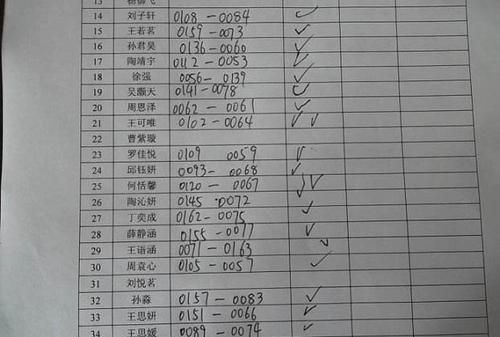 13
14 刘子轩 0108-0084 ✓
15 王若茗 0159-0073 ✓
16 孙君昊 0136-0060 ✓
17 陶靖宇 0112-0053 ✓
18 徐强 0056-0139 ✓
19 吴灏天 0141-0078 ✓
20 周恩泽 0062-0061 ✓
21 王可唯 0102-0064 ✓ ✓
22 曹紫璇
23 罗佳悦 0109 0059 ✓
24 邱钰妍 0093-0068 ✓
25 何恬馨 0120-0067 ✓✓
26 陶沁妍 0145-0072
27 丁奕成 0162-0075 ✓
28 薛静涵 0155-0077 ✓
29 王语涵 0071-0163 ✓
30 周袁心 0105-0057 ✓
31 刘悦茗
32 孙淼 0157-0083 ✓
33 王思妍 0151-0066 ✓
34 王思媛 0089-0074 ✓